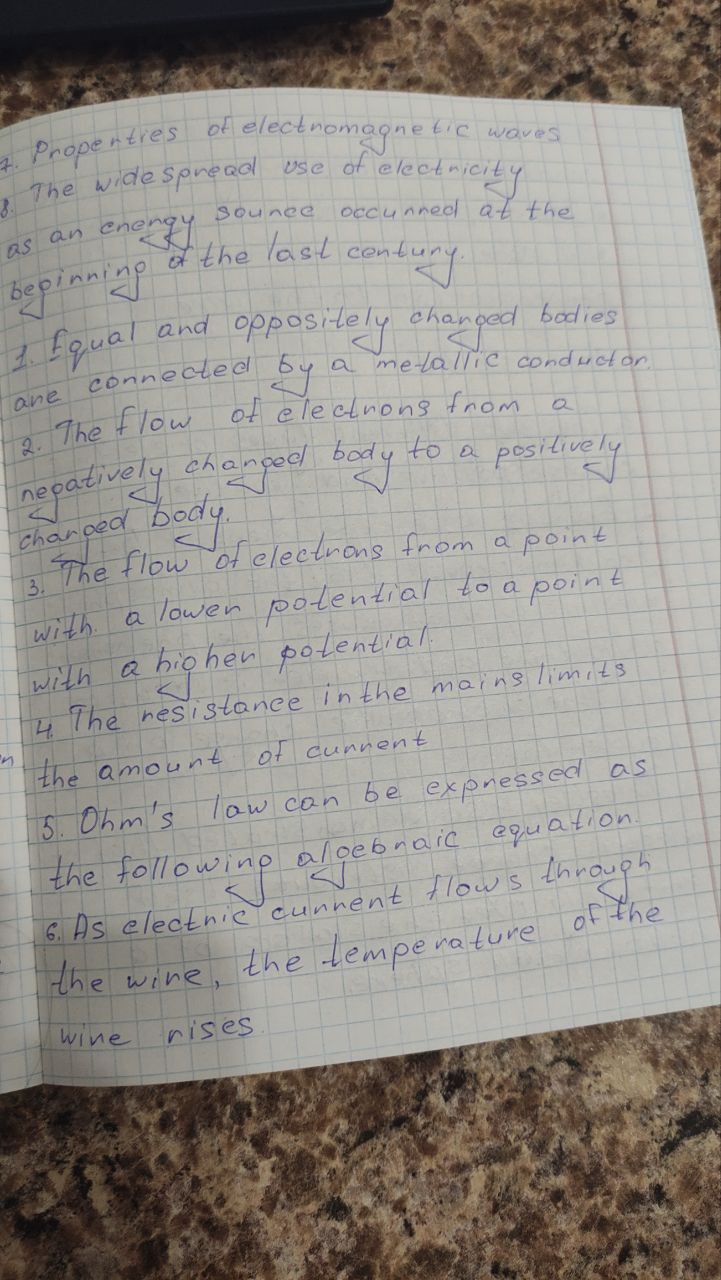 7. Properties of electromagnetic waves
8. The widespread use of electricity
as an energy source occurred at the
beginning of the last century.
1. Equal and oppositely charged bodies
are connected by a metallic conductor.
2. The flow of electrons from a
negatively charged body to a positively
charged body.
3. The flow of electrons from a point
with a lower potential to a point
with a higher potential.
4. The resistance in the mains limits
the amount of current
5. Ohm's law can be expressed as
the following algebraic equation.
6. As electric current flows through
the wire, the temperature of the
wire rises.